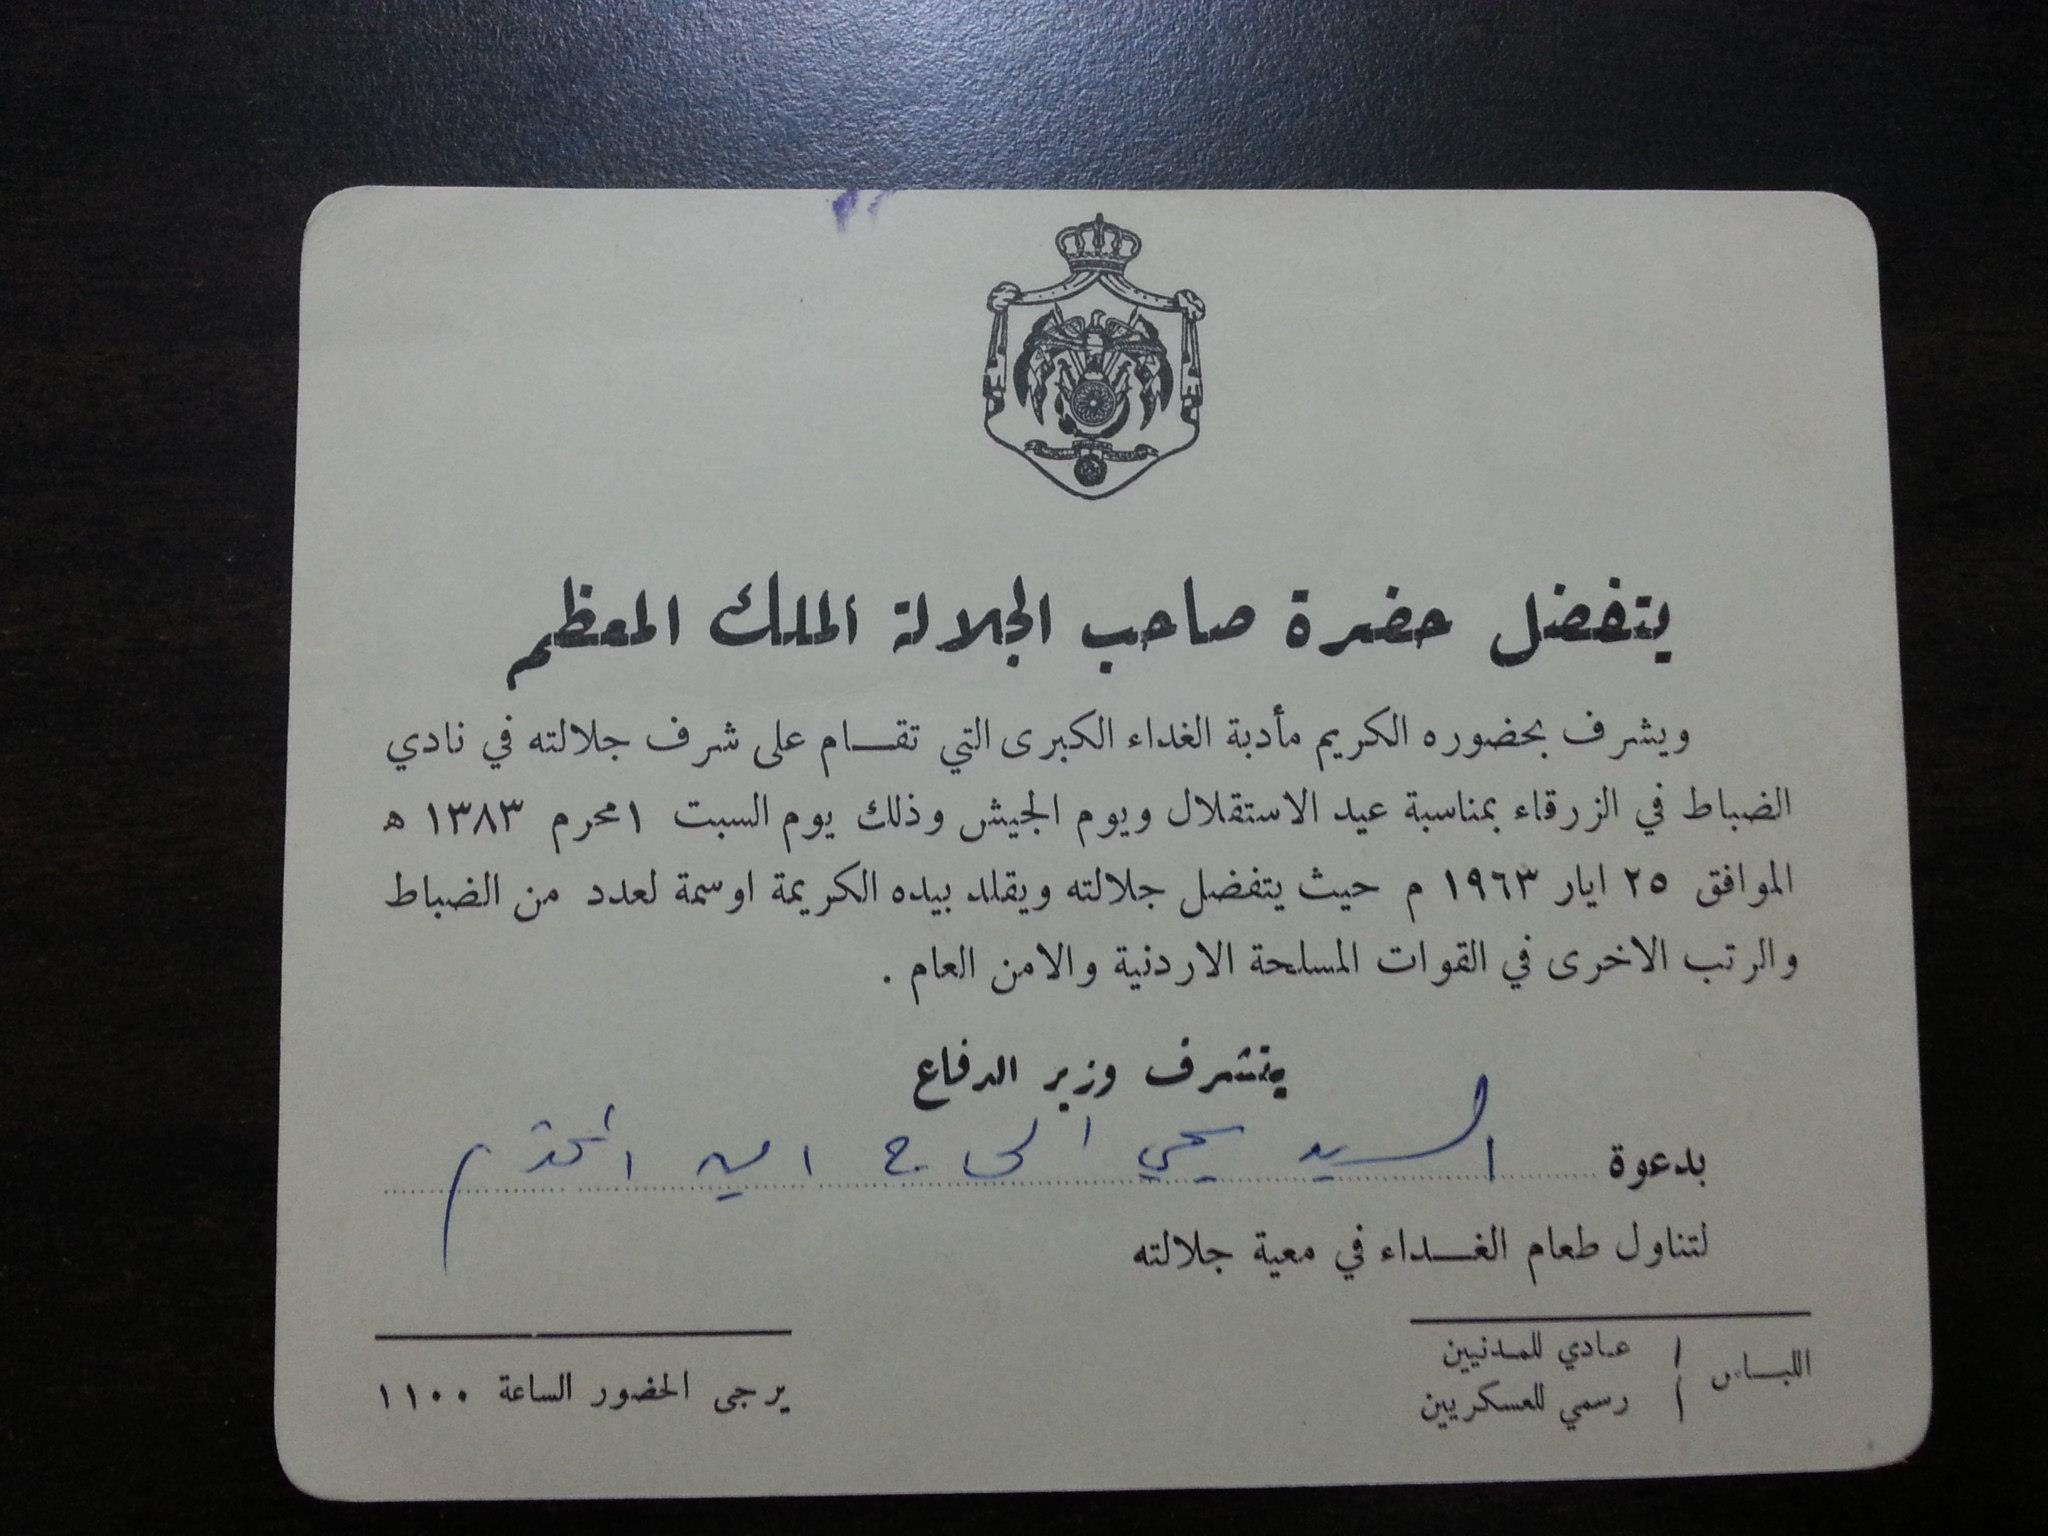 يتفضل حضرة صاحب الجلالة الملك المعظم
ويشرف بحضوره الكريم مأدبة الغداء الكبرى التي تقام على شرف جلالته في نادي
الضباط في الزرقاء بمناسبة عيد الاستقلال ويوم الجيش وذلك يوم السبت ١ محرم ١٣٨٣ ه
الموافق ٢٥ ايار ١٩٦٣ م حيث يتفضل جلالته ويقلد بيده الكريمة اوسمة لعدد من الضباط
والرتب الاخرى في القوات المسلحة الاردنية والامن العام .
يتشرف وزير الدفاع
بدعوة السيد يحيي الحاج امين المحترم
لتناول طعام الغداء في معية جلالته
اللباس / عادي للمدنيين
رسمي للعسكريين
يرجى الحضور الساعة ١١٠٠